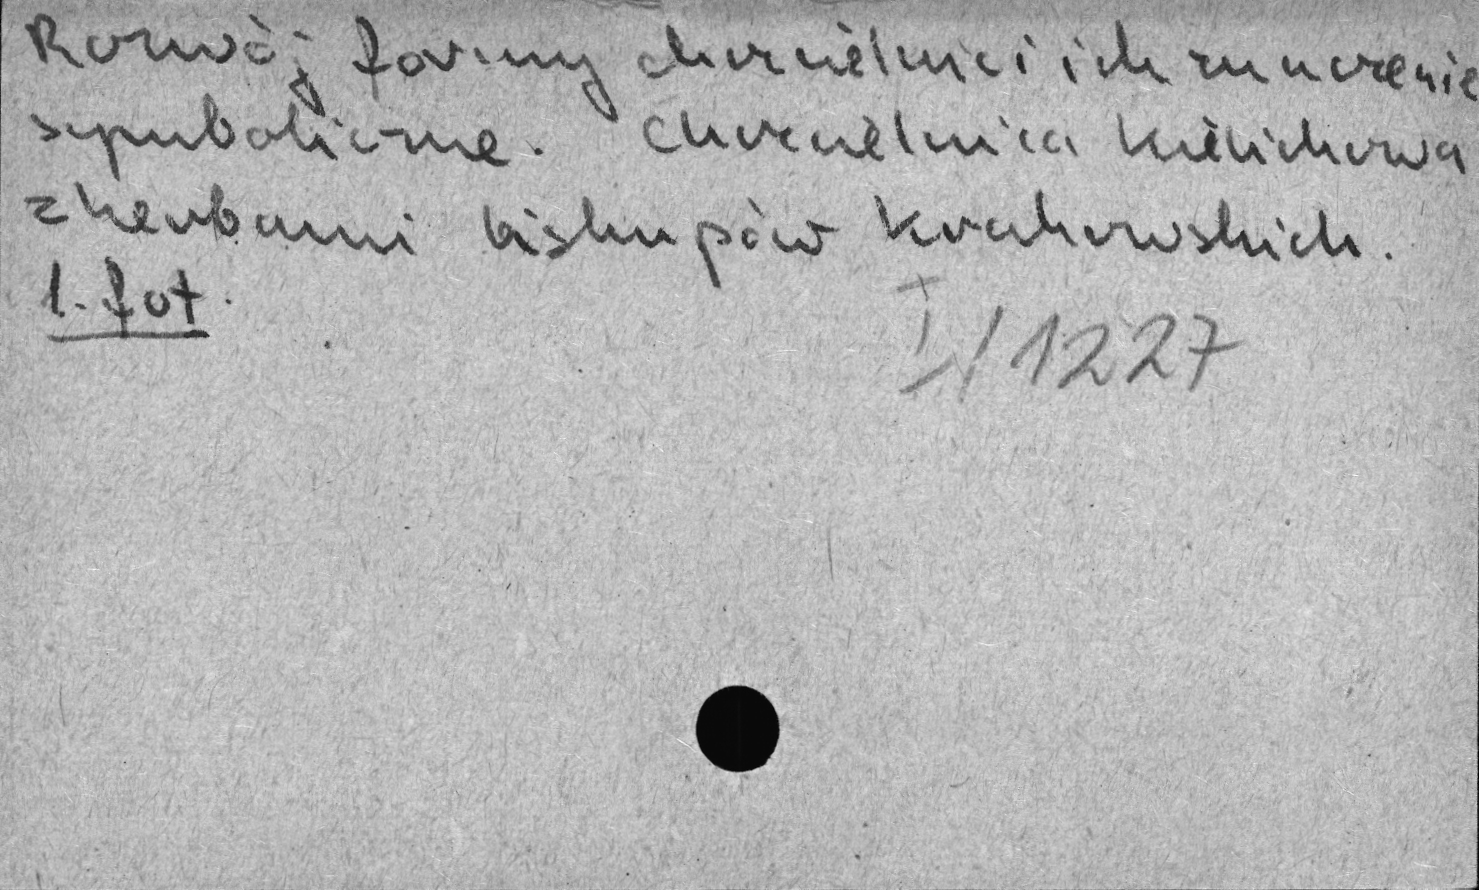 Rozwój formy chrzcielnic i ich znaczenie
symboliczne. Chrzcielnica kielichowa
z herbami biskupów krakowskich.
1. fot.
I/1227